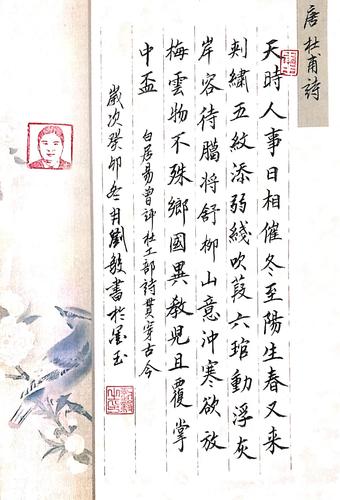 唐杜甫詩
天時人事日相催冬至陽生春又来
刺繡五紋添弱綫吹葭六琯動浮灰
岸容待臘將舒柳山意沖寒欲放
梅雲物不殊鄉國異教兒且覆掌
中盃
白居易曾评杜工部詩貫穿古今
歲次癸卯冬月劉毅書於墨玉